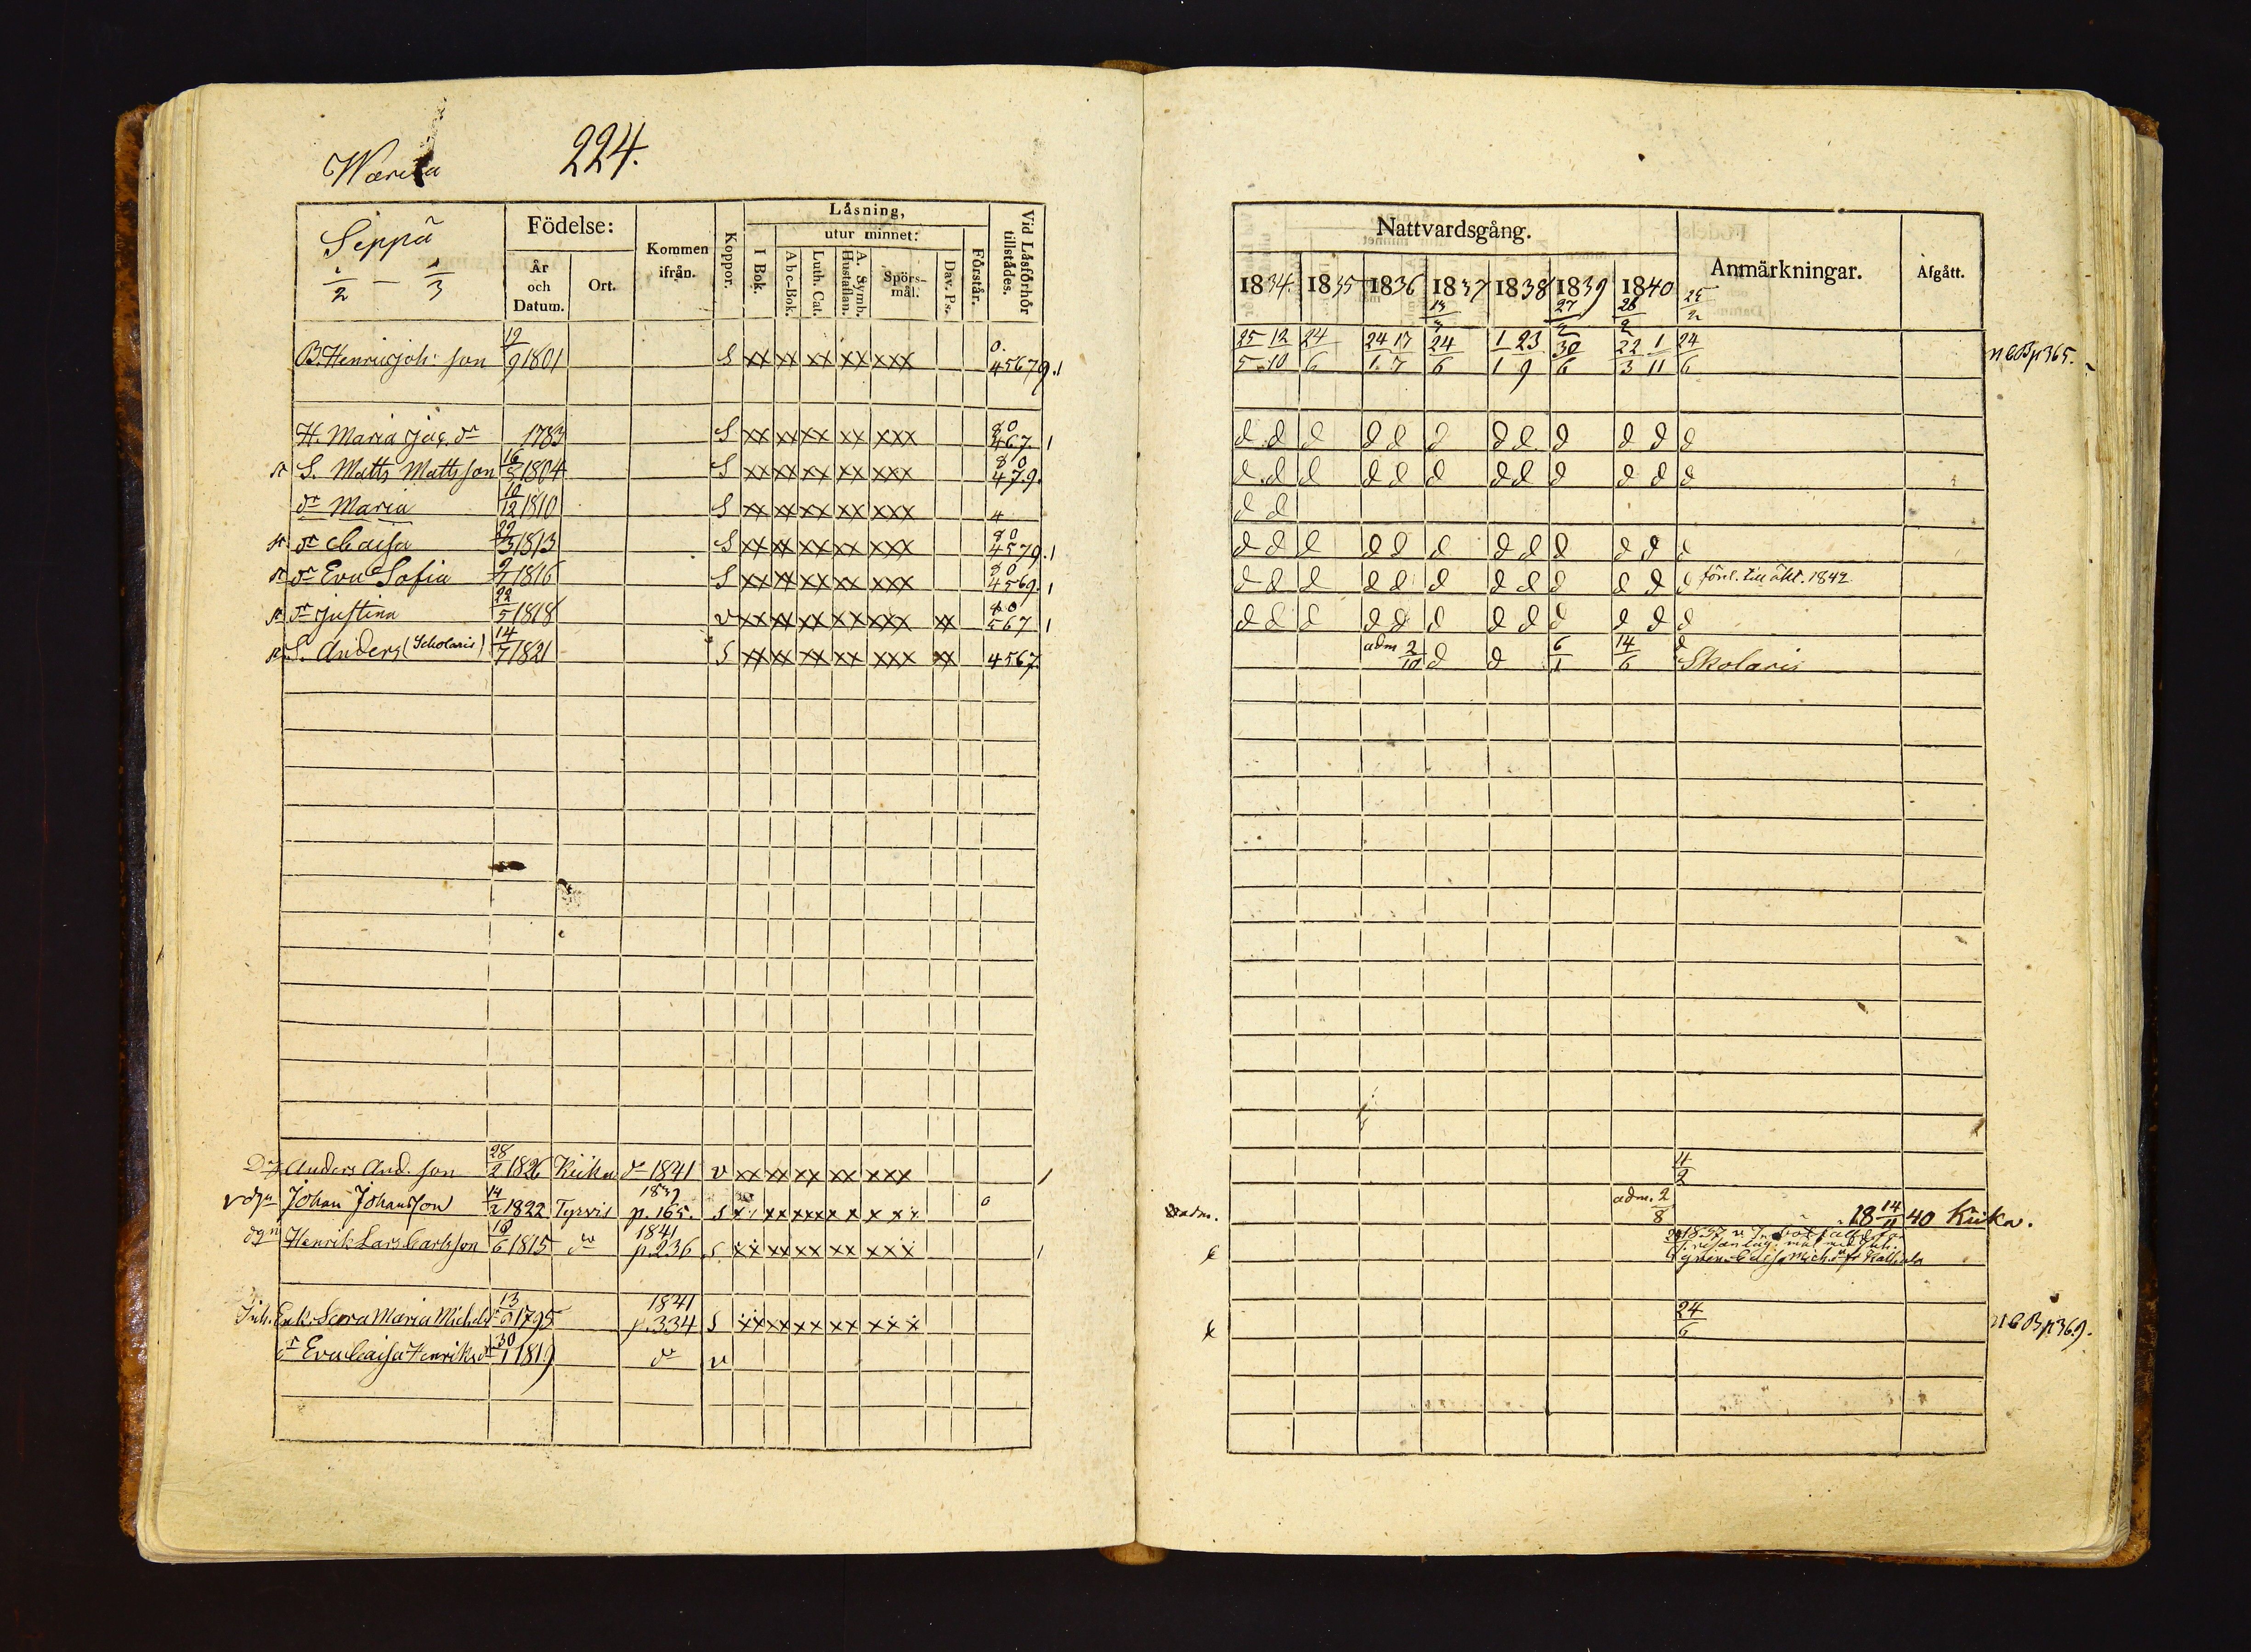 224.
Seppä
Födelse:
År
och
Datum.
Ort.
Kommen
ifrån.
Koppor.
Läsning,
I Bok.
utur minnet:
Abc-Bok.
Luth. Cat.
A. Symb.
Hustaflan.
Spörs-
mål.
Dav. Ps.
Förstår.
Vid Läsförhör
tillstädes.
1/2 — 1/3
B. Henric Joh: son 19/9 1801 S xx xx xx xx xxx 0. 45679.1
H. Maria Jac. dr 1783 S xx xx xx xx xxx 80 467 1
S. Matts Mattsson 16/5 1804 S xx xx xx xx xxx 80 479.
dr Maria 10/12 1810 S xx xx xx xx xxx 4
dr Caisa 29/3 1813 S xx xx xx xx xxx 80 4579.1
dr Eva Sofia 9/1 1816 S xx xx xx xx xxx 80 4569.1
dr Justina 22/5 1818 v xx xx xx xx xxx xx 80 567 1
S. Anders (Scholaris) 14/7 1821 S xx xx xx xx xxx xx 4567.
Anders And. son 28/2 1826 Kiika dr 1841 v xx xx xx xx xxx 1
Johan Johansson 14/2 1822 Tyrvis 1839 p. 165. S
Henrik Lars Carlsson 16/6 1815 do 1841 p. 236 S xx xx xx xx xxx 1
Inh. Enk. Sara Maria Michelsdr 13/9 1795 1841 p. 334 S xx xx xx xx xxx
dr Eva Caisa Henriksdr 30/1 1819 do v
Nattvardsgång.
1834. 1835 1836 1837 1838 1839 1840
Anmärkningar.
Afgått.
25/5 12/10 24/6 24/1 17/7 24/6 1/1 23/9 30/6 22/3 1/11 24/6 n C B p 365.
d d d d d d d d d d d d
d d d d d d d d d d d d
d d
d d d d d d d d d d d d
d d d d d d d d d d d d förl. till äkt. 1842
d d d d d d d d d d d d
adm 2/10 d d 6/1 14/6 d Skolaris
11/2
adm. adm. 2/8 18 14/11 40 Kiika.
24/6 n C B p 369.